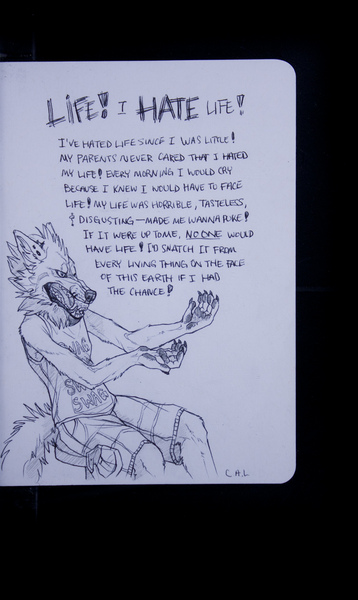 LIFE! I HATE LIFE!
I'VE HATED LIFE SINCE I WAS LITTLE!
MY PARENTS NEVER CARED THAT I HATED
MY LIFE! EVERY MORNING I WOULD CRY
BECAUSE I KNEW I WOULD HAVE TO FACE
LIFE! MY LIFE WAS HORRIBLE, TASTELESS,
& DISGUSTING—MADE ME WANNA PUKE!
IF IT WERE UP TO ME, NO ONE WOULD
HAVE LIFE! I'D SNATCH IT FROM
EVERY LIVING THING ON THE FACE
OF THIS EARTH IF I HAD
THE CHANCE!
SWAG
C.H.L